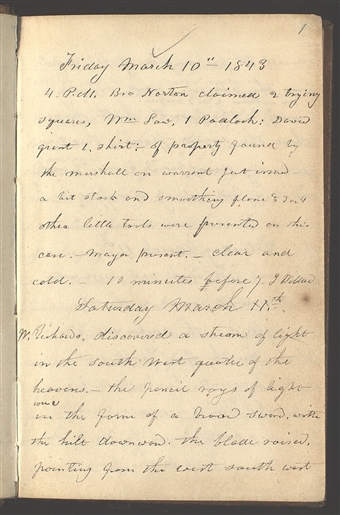 1
Friday March 10th 1843
4. P.M. Bro Norton claimed 2 trying
squares, Wm Law, 1 Padlock; David
grant 1. shirt; of property found by
the marshall on warrant just issued
a bit stock and smoothing plane & 3 or 4
other little tools were presented on this
case. - Mayor present. - clear and
cold. - 10 minutes before 7. J
Saturday March 11th.
W. Richards. discovered a steam of light
in the South West quarter of the
heavens. - the pencil rays of light
were
in the form of a broad Sword, with
the hilt downward. the blade raised,
pointing from the west south west